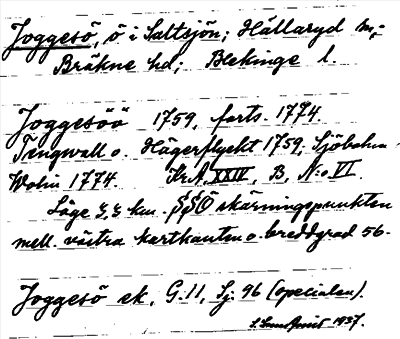 Joggesö, ö i Saltsjön; Hällaryd sn;
Bräkne hd; Blekinge l.
Joggesöö 1759, forts. 1774
Tingwall o. Hägerflyckt 1759, Sjöbohm
Wohn 1774. KrA, XXIV, B, N:o VI.
Läge 3,3 km. SSÖ skärningspunkten
mell. västra kartkanten o. breddgrad 56.
Joggesö ek. G. 11, Sj. 96 (specialen).
1937.